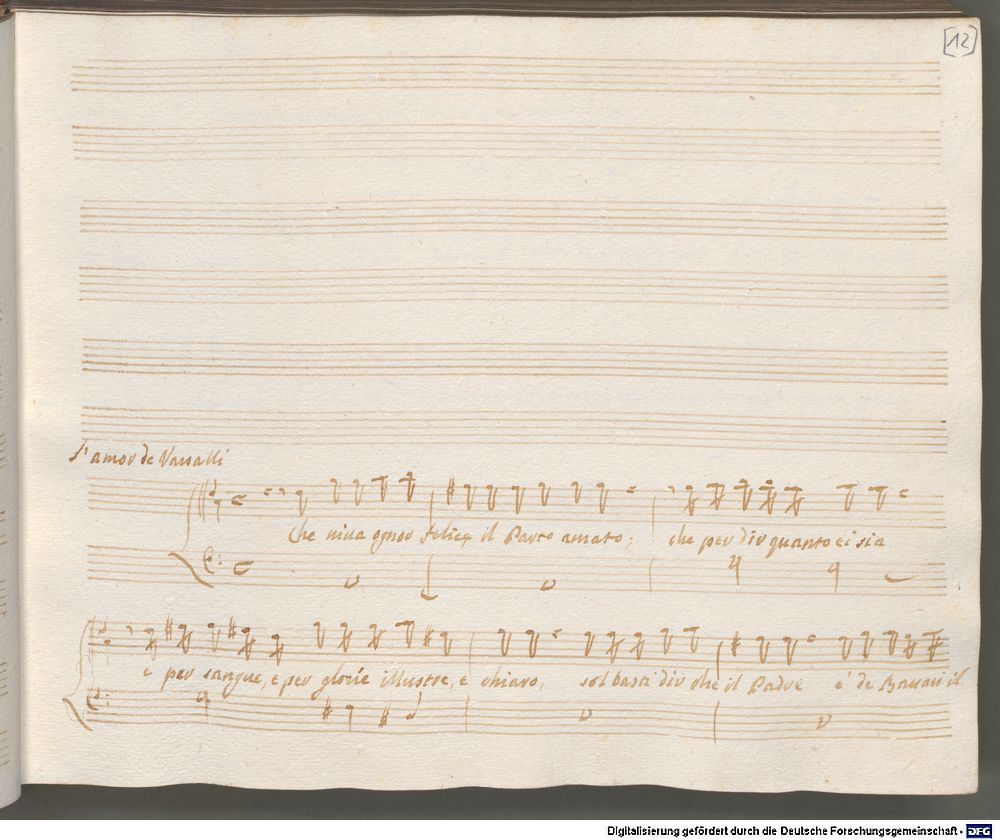 [12]
L'amor de Vassalli
che viva ognor felice il Parto amato; che per dir quanto ei sia
e per sangue, e per glorie illustre, e chiaro, sol basti dir che il Padre è de Bavari il
Digitalisierung gefördert durch die Deutsche Forschungsgemeinschaft - DFG